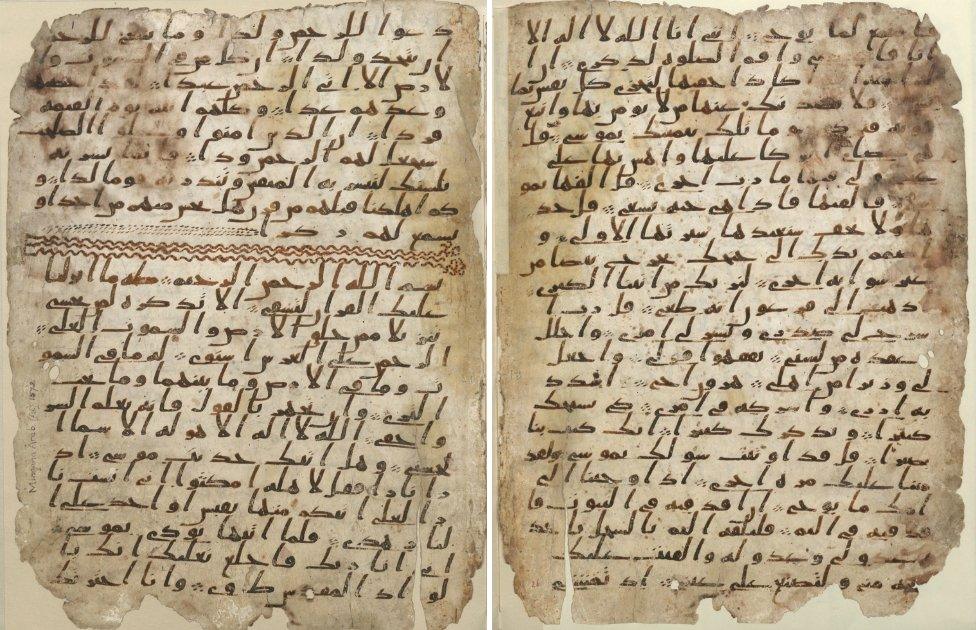 دعوا للرحمن ولدا وما ينبغي للرحمن
ان يتخذ ولدا ان كل من في السموت وا
لارض الا اتي الرحمن عبدا لقد
وعدهم عدا وكلهم اتيه يوم القيمة
فردا ان الذين امنوا وعملوا الصلحت
سيجعل لهم الرحمن ودا فانما يسرنه
بلسنك لتبشر به المتقين وتنذر به قوما لدا و
كم اهلكنا قبلهم من قرن هل تحس منهم من احد او
تسمع لهم ركزا
بسم الله الرحمن الرحيم طه ما انزلنا
عليك القرن لتشقى الا تذكرة لمن يخشى
تنزيلا ممن خلق الارض والسموت العلى
الرحمن على العرش استوى له ما في السمو
ت وما في الارض وما بينهما وما تحت
الثرى وان تجهر بالقول فانه يعلم السر
واخفى الله لا اله الا هو له الاسما ا
لحسنى وهل اتيك حديث موسى اذ
را نارا فقل لاهله امكثوا اني انست نا
را لعلي اتيكم منها بقبس او اجد على ا
لنار هدى فلما اتيها نودي يموسى
اني انا ربك فاخلع نعليك انك با
لواد المقدس طوى وانا اخترتك
Mingana Arab 1572
فاستمع لما يوحى انني انا الله لا اله الا
انا واقم الصلوة لذكري ان ا
اكاد اخفيها لتجزى كل نفس بما
فلا يصدنك عنها من لا يومن بها واتبع
هويه فتردى وما تلك بيمينك يموسى قل
هي عصاي عليها واهش بها على
غنمي ولي فيها مارب اخرى قل القها يمو
سى فالقيها فاذا هي حية تسعى قل خذ
ها ولا تخف سنعيدها سيرتها الاولى و
اضمم يدك الى جنحك تخرج بيضا من
غير سو اية اخرى لنريك من ايتنا الكبرى
اذهب الى فرعون انه طغى قل رب ا
شرح لي صدري ويسر لي امري واحلل
عقدة من لسني يفقهوا قولي واجعل
لي وزيرا من اهلي هرون اخي اشدد
به ازري واشركه في امري كي نسبحك
كثيرا ونذكرك كثيرا انك كنت بنا
بصيرا قل قد اوتيت سولك يموسى ولقد
مننا عليك مرة اخرى اذ اوحينا الى
امك ما يوحى ان اقذفيه في التبوت فا
قذفيه في اليم فليلقه اليم بالسحل ياخذ
ه عدو لي وعدو له والقيت عليك
محبة مني ولتصنع على عيني اذ تمشي